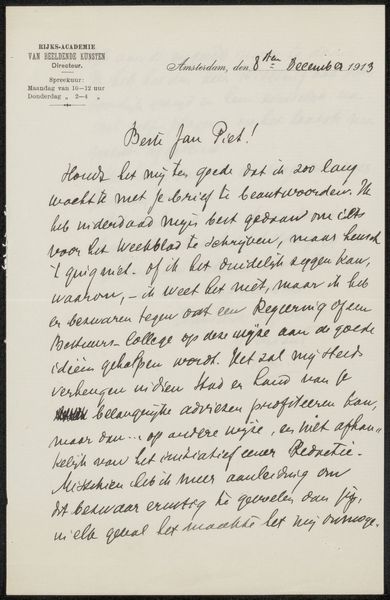 RIJKS-ACADEMIE
VAN BEELDENDE KUNSTEN
Directeur.
Spreekuur:
Maandag van 10–12 uur
Donderdag „ 2–4 „
Amsterdam, den 8sten December 1913
Beste Jan Piet!
Houdt het mij ten goede dat ik zoo lang
wachtte met je brief te beantwoorden. Ik
heb inderdaad mijn best gedaan om iets
voor het Weekblad te schrijven, maar heusch
't ging niet. of ik het duidelijk zeggen kan,
waarom, – ik weet het niet, maar ik heb
er bezwaren tegen dat een Regeering of een
Bestuurs-College op deze wijze aan de goede
ideeën geholpen wordt. Het zal mij steeds
verheugen indien Stad en Land van je
belangrijke adviezen profiteeren kan,
maar dan... op andere wijze, en niet afhan-
kelijk van het initiatief eener Redactie.
Misschien heb ik meer aanleiding om
dit bezwaar ernstig te gevoelen dan jij,
in elk geval het maakte het mij onmoge-